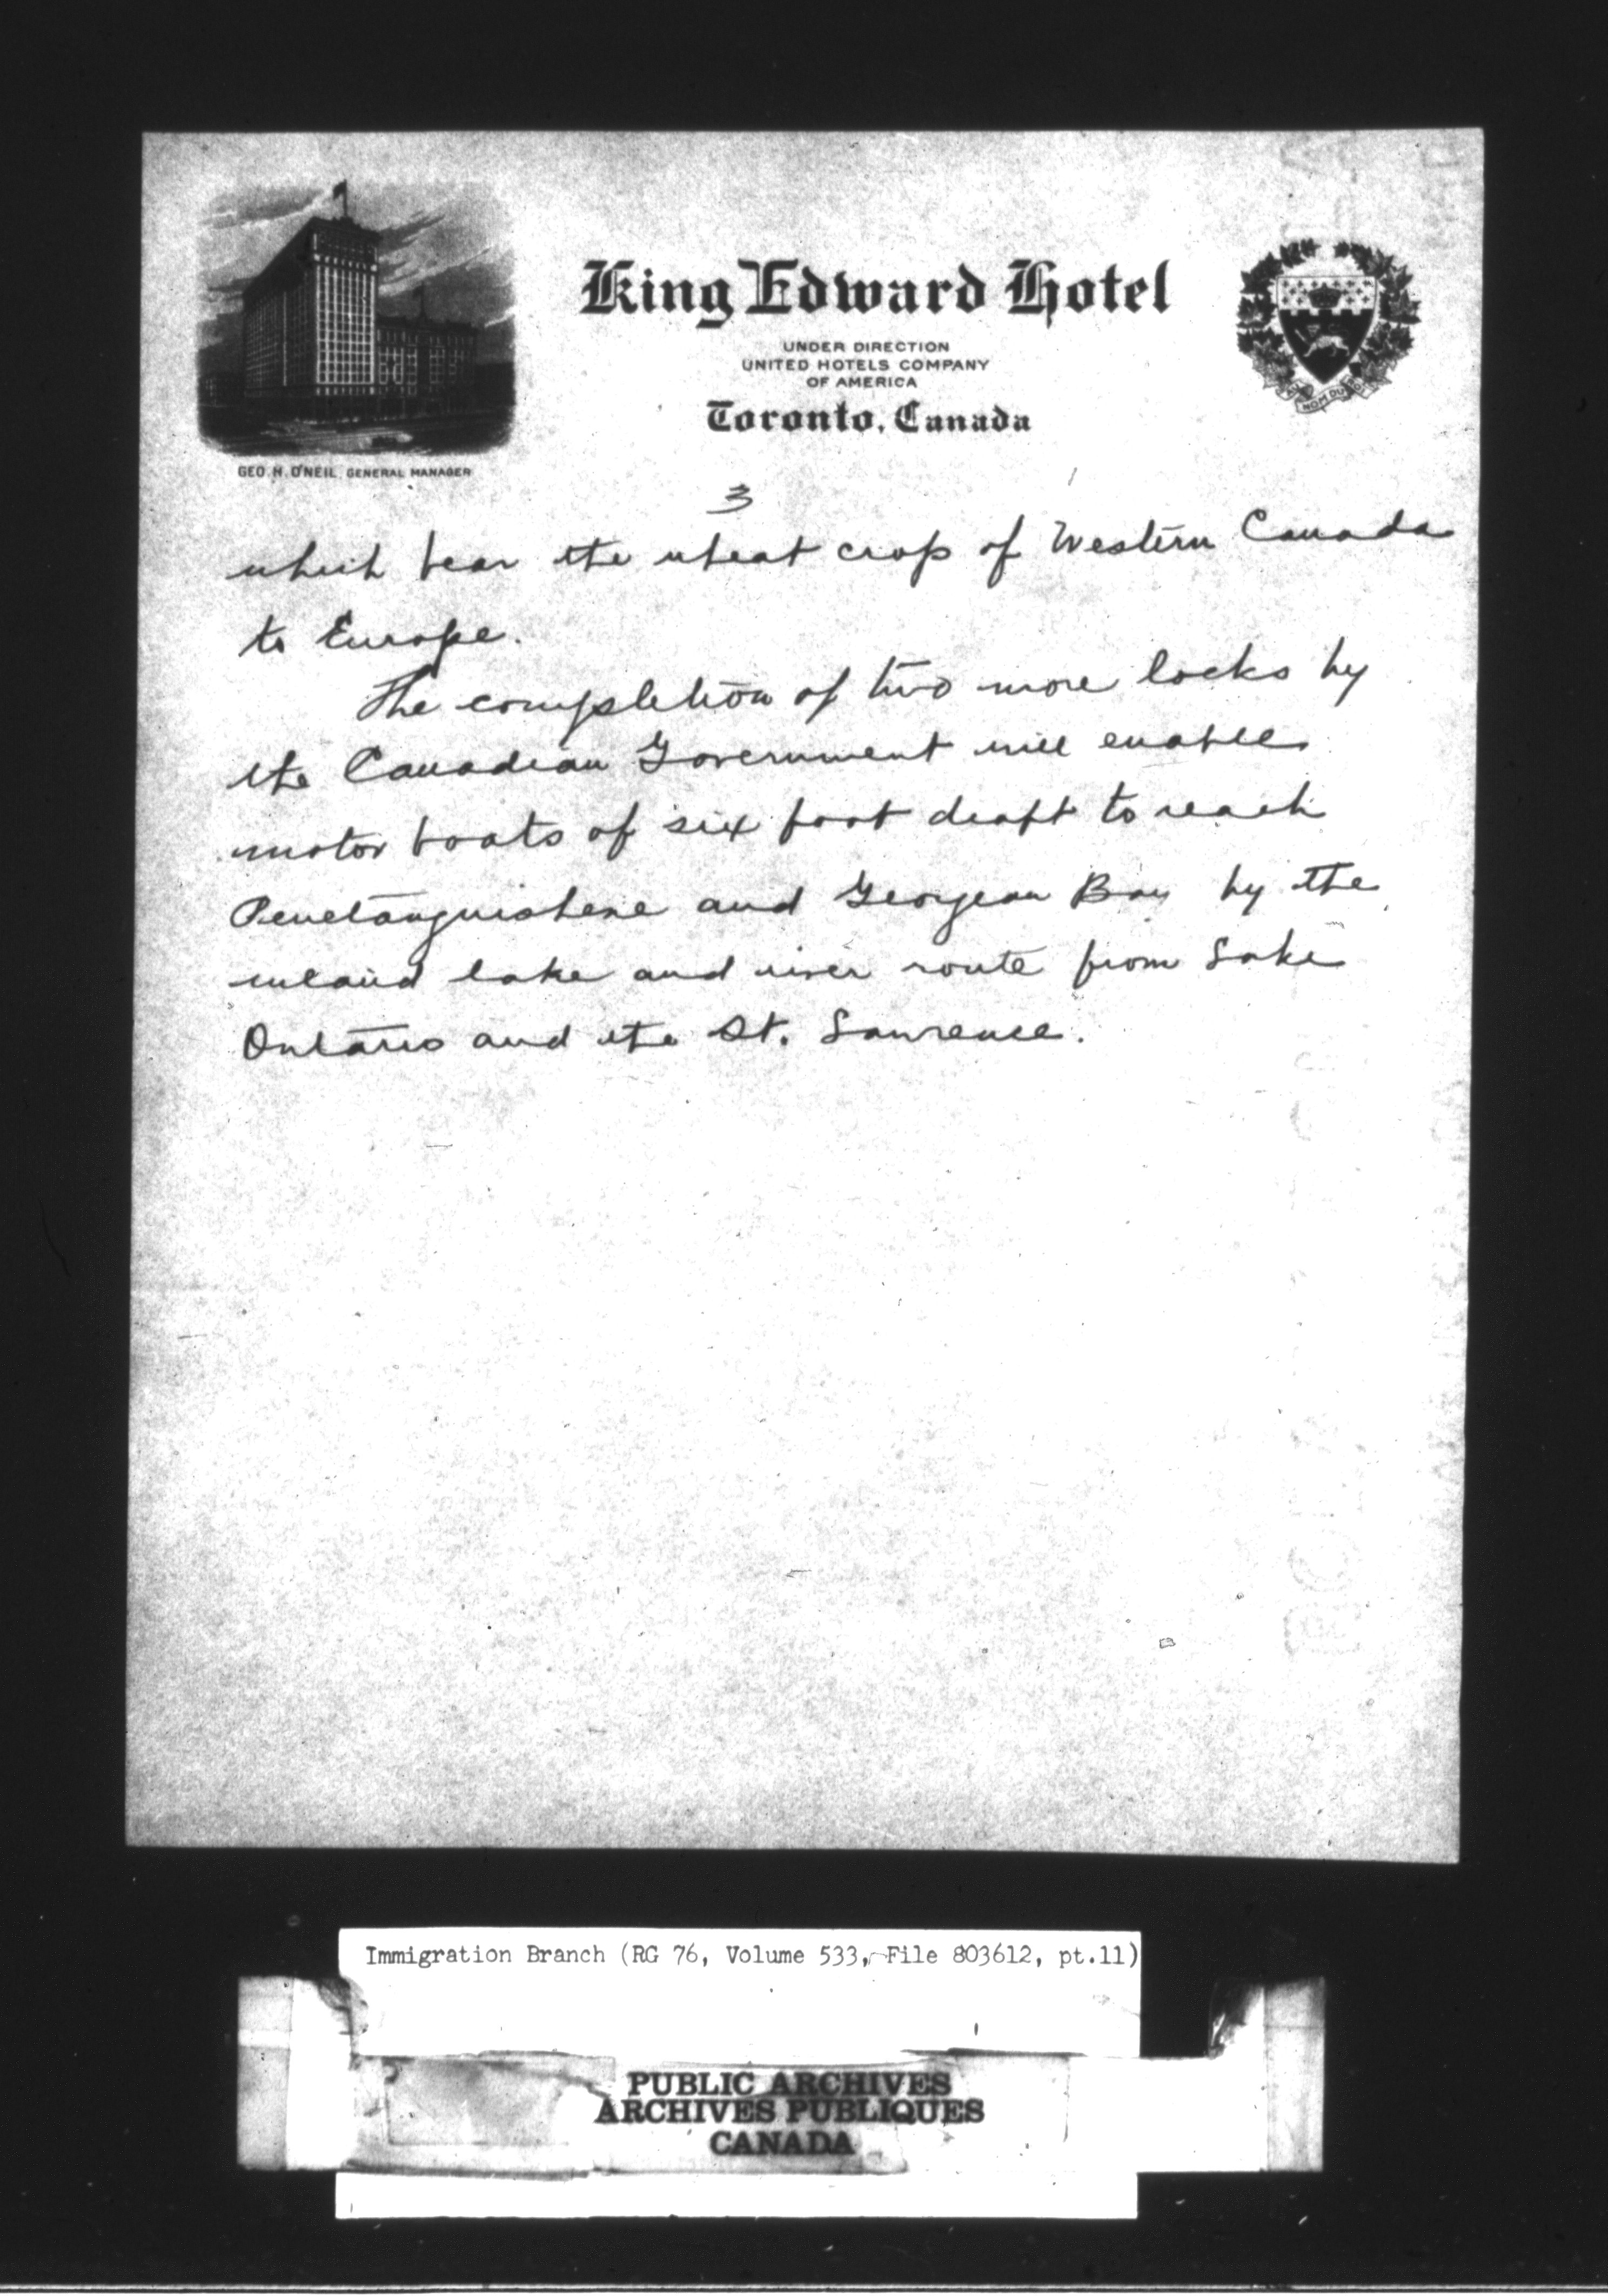 King Edward Hotel
UNDER DIRECTION
UNITED HOTELS COMPANY
OF AMERICA
Toronto, Canada
GEO. H. O'NEIL, GENERAL MANAGER
3
which bear the wheat crop of Western Canada
to Europe.
The completion of two more locks by
the Canadian Government will enable
motor boats of six foot draft to reach
Penetanguishene and Georgean Bay by the
inland lake and river route from Lake
Ontario and the St. Lawrence.
Immigration Branch (RG 76, Volume 533, File 803612, pt.11)
PUBLIC ARCHIVES
ARCHIVES PUBLIQUES
CANADA